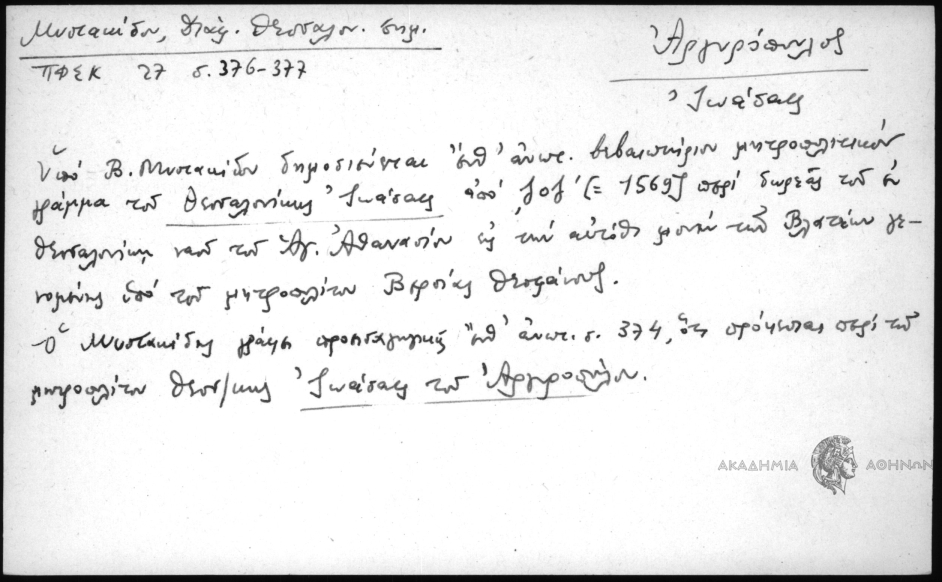 Μυστακίδου, Διάφ. Θεσσαλον. σημ.
ΠΦΣΚ 27 σ. 376-377
Ἀργυρόπουλος
Ἰωάσαφ
Ὑπό Β. Μυστακίδου δημοσιεύεται ἔνθ' ἀνωτ. βεβαιωτήριον μητροπολιτικόν
γράμμα τοῦ Θεσσαλονίκης Ἰωάσαφ ἀπό ζοζ' (= 1569) περί δωρεᾶς τοῦ ἐν
Θεσσαλονίκῃ ναοῦ τοῦ Ἁγ. Ἀθανασίου εἰς τήν αὐτόθι μονήν τῶν Βλατέων γε-
νομένης ὑπό τοῦ μητροπολίτου Βεροίας Θεοφάνους.
Ὁ Μυστακίδης γράφει προεισαγωγικῶς ἔνθ' ἀνωτ. σ. 374, ὅτι πρόκειται περί τοῦ
μητροπολίτου Θεσ/κης Ἰωάσαφ τοῦ Ἀργυροπούλου.
ΑΚΑΔΗΜΙΑ ΑΘΗΝΩΝ